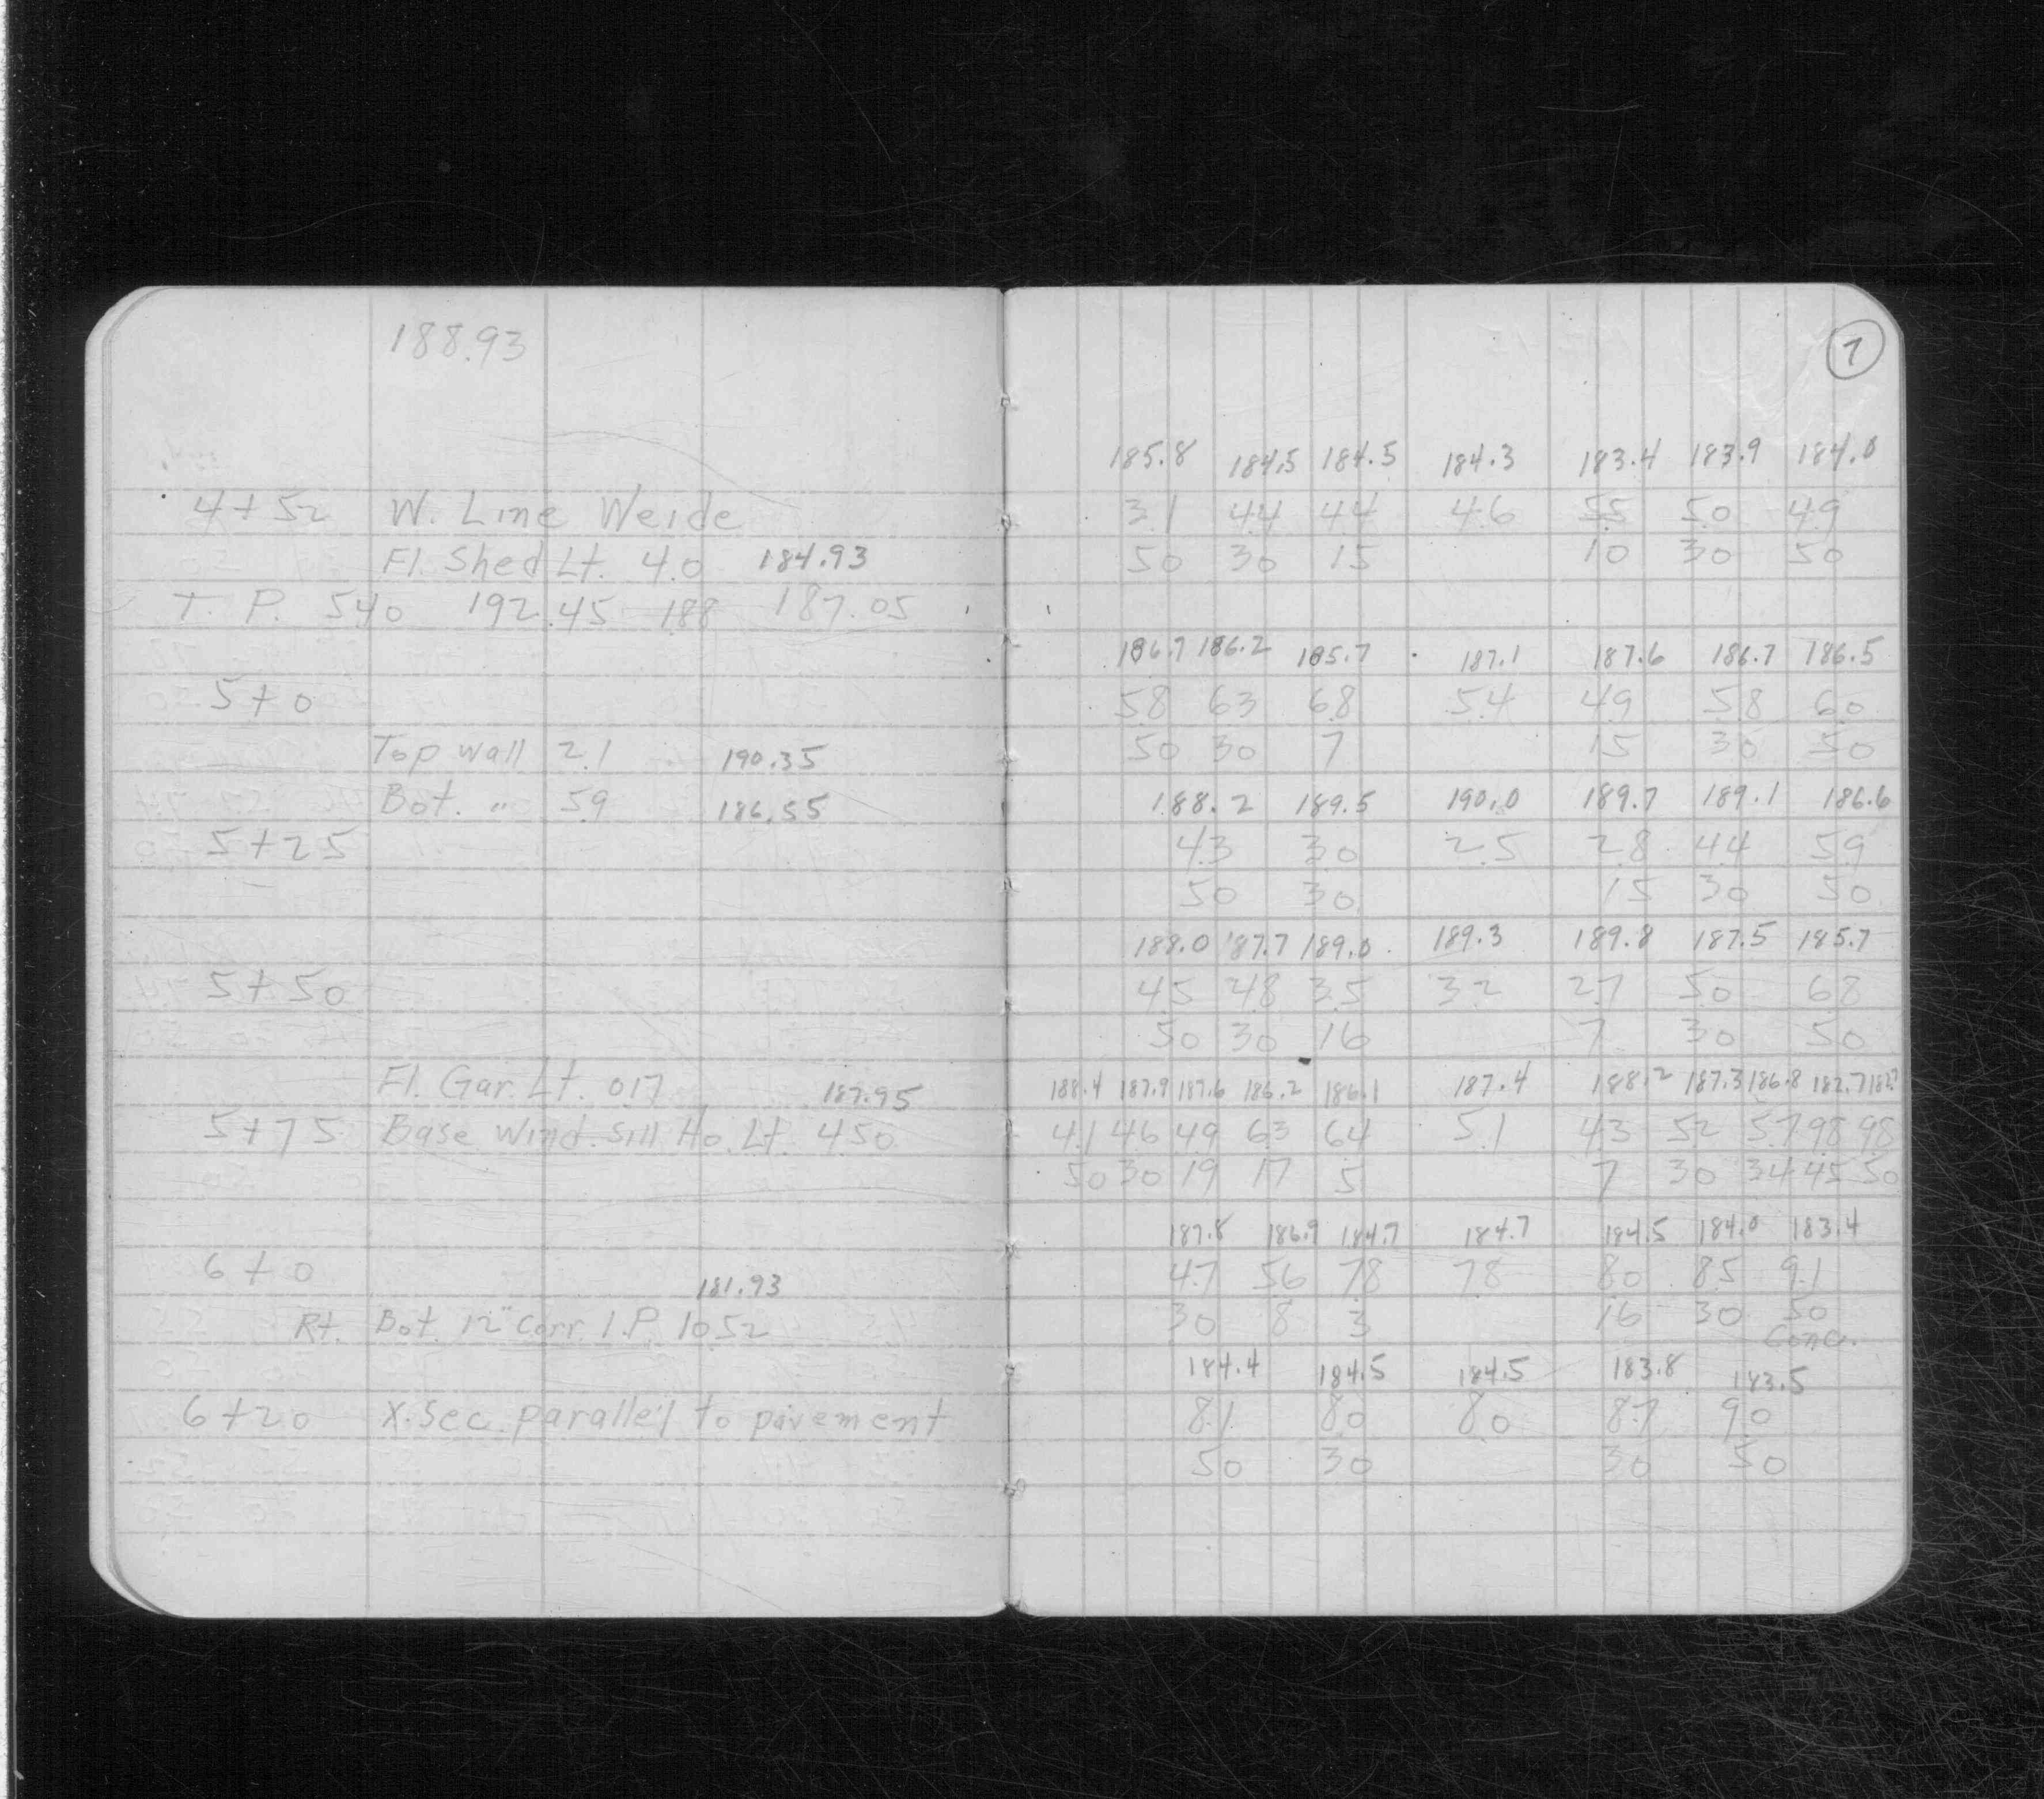 188.93
4+52 W. Line Weide
Fl. Shed Lt. 4.0 184.93
T. P. 540 192.45 188 187.05
5+0
Top wall 2.1 190.35
Bot. " 5.9 186.55
5+25
5+50
Fl. Gar. Lt. 017 187.95
5+75 Base Wind. Sill Ho. Lt. 450
6+0
181.93
Rt. Bot. 12" Corr. I.P. 1052
6+20 X. Sec. parallel to pavement
7
185.8 184.5 184.5 184.3 183.4 183.9 184.0
3.1 4.4 4.4 4.6 5.5 5.0 4.9
50 30 15 10 30 50
186.7 186.2 185.7 187.1 187.6 186.7 186.5
5.8 6.3 6.8 5.4 4.9 5.8 6.0
50 30 7 15 30 50
188.2 189.5 190.0 189.7 189.1 186.6
4.3 3.0 2.5 2.8 4.4 5.9
50 30 15 30 50
188.0 187.7 189.0 189.3 189.8 187.5 185.7
4.5 4.8 3.5 3.2 2.7 5.0 6.8
50 30 16 7 30 50
188.4 187.9 187.6 186.2 186.1 187.4 188.2 187.3 186.8 182.7 182.7
4.1 4.6 4.9 6.3 6.4 5.1 4.3 5.2 5.7 9.8 9.8
50 30 19 17 5 7 30 34 45 50
187.8 186.9 184.7 184.7 184.5 184.0 183.4
4.7 5.6 7.8 7.8 8.0 8.5 9.1
30 8 3 16 30 50
Conc.
184.4 184.5 184.5 183.8 183.5
8.1 8.0 8.0 8.7 9.0
50 30 30 50